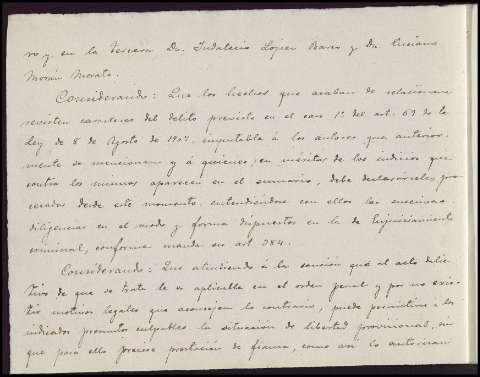 ro y en la tercera Dn. Indalecio López Bares y Dn. Luciano
Morán Morato.
Considerando: Que los hechos que acaban de relacionarse
revisten caracteres del delito previsto en el caso 1º del art. 69 de la
Ley de 8 de Agosto de 1907, imputable á los autores que anterior-
mente se mencionan y á quienes, en méritos de los indicios que
contra los mismos aparecen en el sumario, debe declarárseles pro
cesados desde este momento, entendiéndose con ellos las sucesivas
diligencias en el modo y forma dispuestos en la de Enjuiciamiento
criminal, conforme manda su art. 384.
Considerando: Que atendiendo á la sanción que al acto delic-
tivo de que se trata le es aplicable en el orden penal y por no exis-
tir motivos legales que aconsejen lo contrario, puede permitirse á los
indicados presuntos culpables la situación de libertad provisional, sin
que para ello precise prestación de fianza, como así lo autorizan